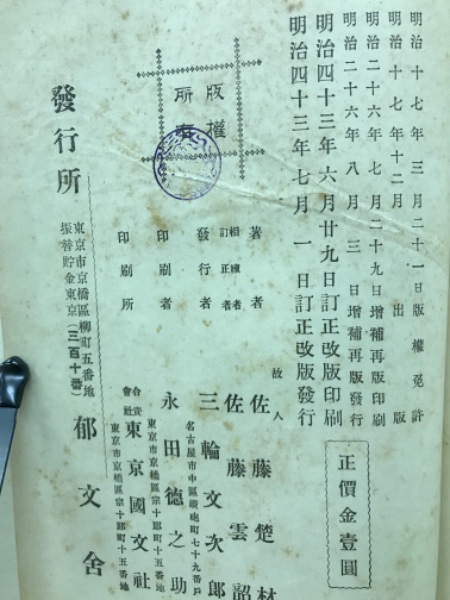 明治十七年三月二十一日版權免許
明治十七年十二月出版
明治二十六年七月二十九日增補再版印刷
明治二十六年八月三日增補再版發行
明治四十三年六月廿九日訂正改版印刷
明治四十三年七月一日訂正改版發行
正價金壹圓
版權
所有
著者
故人
佐藤楚材
相續者
訂正者
佐藤雲韶
發行者
三輪文次郎
名古屋市中區鐵砲町七十九番戶
印刷者
永田德之助
東京市京橋區宗十郎町十五番地
印刷所
合資
會社
東京國文社
東京市京橋區宗十郎町十五番地
發行所
東京市京橋區柳町五番地
振替貯金東京(三百十番)
郁文舍